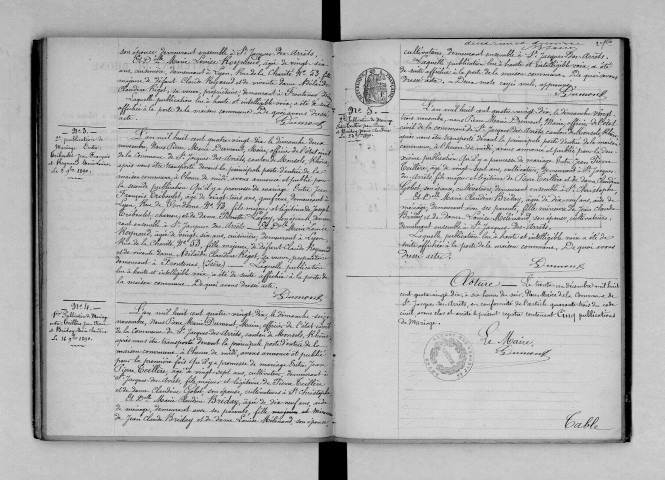 son épouse demeurant ensemble à St Jacques-des-Arrêts.
Et Dlle Marie Louise Reynaud, âgée de vingt-six
ans, cuisinière, demeurant à Lyon, Rue de la Charité No 53, fille
majeure de défunt Claude Reynaud et de vivante dame Adélaïde
Claudine Rigot, sa mère, propriétaire, demeurant à
Laquelle publication lue à haute et intelligible voix, a été de suite
affichée à la porte de la maison commune. De quoi avons dressé
acte.
Dumont
No 3.
2e publication de
Mariage Entre
Triboulet Jean François
et Reynaud Marie Louise
Le 2 9bre 1890.
L'an mil huit cent quatre-vingt-dix, le dimanche deux
novembre, Nous Pierre Marie Dumont, Maire, officier de l'état civil
de la Commune de St Jacques des Arrêts, canton de Monsols, Rhône,
après nous être transporté devant la principale porte d'entrée de la
maison commune, à l'heure de midi, avons annoncé et publié pour
la seconde publication qu'il y a promesse de mariage Entre Jean
François Triboulet, âgé de vingt-trois ans,
Lyon, Rue No 13, fils majeur et légitime de Joseph
Triboulet, et de dame son épouse demeu-
rant ensemble à St Jacques des Arrêts. Et Dlle Marie Louise
Reynaud, âgée de vingt-six ans, cuisinière, demeurant à Lyon,
Rue de la Charité, No 53, fille majeure de défunt Claude Reynaud
et de vivante dame Adélaïde Claudine Rigot, sa mère, propriétaire
demeurant à (Isère) Laquelle publication
lue à haute et intelligible voix a été de suite affichée à la porte de
la maison commune. De quoi avons dressé acte.
Dumont
No 4.
1ère Publication de Mariage
entre Teillère Jean Pierre
et Briday Marie Claudine
Le 16 9bre 1890.
L'an mil huit cent quatre-vingt-dix, le dimanche seize
novembre, Nous Pierre Marie Dumont, Maire, officier de l'état civil
de la Commune de St Jacques des Arrêts, canton de Monsols, Rhône,
après nous être transporté devant la principale porte d'entrée de la
maison commune à l'heure de midi, avons annoncé et publié
pour la première fois qu'il y a promesse de mariage Entre Jean
Pierre Teillère, âgé de vingt-sept ans, cultivateur, demeurant à St
Jacques-des-Arrêts, fils majeur et légitime de Pierre Teillère
et de dame Claudine Gobet, son épouse, cultivateurs à St Christophe
Et Dlle Marie Claudine Briday, âgée de dix-neuf ans, aide
de ménage, demeurant avec ses parents, fille mineure
de Jean Claude Briday et de dame Louise son épouse
cultivateurs, demeurant ensemble à St Jacques des Arrêts.
Laquelle publication lue à haute et intelligible voix a été de
suite affichée à la porte de la maison commune. De quoi avons
dressé acte.
Dumont
No 5.
2e Publication de Mariage
Entre Teillère Jean Pierre
et Briday Marie Claudine
Le 23 9bre 1890.
L'an mil huit cent quatre-vingt-dix, le dimanche vingt-trois
novembre, nous Pierre Marie Dumont, Maire, officier de l'état
civil de la commune de St Jacques des Arrêts, canton de Monsols, Rhône,
après nous être transporté devant la principale porte d'entrée de la maison
commune à l'heure de midi, avons annoncé et publié pour la deu-
xième publication qu'il y a promesse de mariage Entre Jean Pierre
Teillère, âgé de vingt-sept ans, cultivateur, demeurant à St Jacques
des Arrêts, fils majeur et légitime de Pierre Teillère et de dame Claudine
Gobet, son épouse, cultivateurs, demeurant ensemble à St Christophe
Et Dlle Marie Claudine Briday, âgée de dix-neuf ans, aide de
ménage, demeurant avec ses parents, fille mineure de Jean Claude
Briday et de dame Louise son épouse, cultivateurs,
demeurant ensemble à St Jacques des Arrêts.
Laquelle publication, lue à haute et intelligible voix a été de
suite affichée à la porte de la maison commune. De quoi avons
dressé acte.
Dumont
Clôture. Le trente-un décembre mil huit
cent quatre-vingt-dix, à six heures du soir, Nous Maire de la Commune de
St Jacques des Arrêts, en conformité de l'article quarante-trois du code
civil, avons clos et arrêté le présent registre contenant Cinq publications
de Mariage.
Le Maire
Dumont
Table